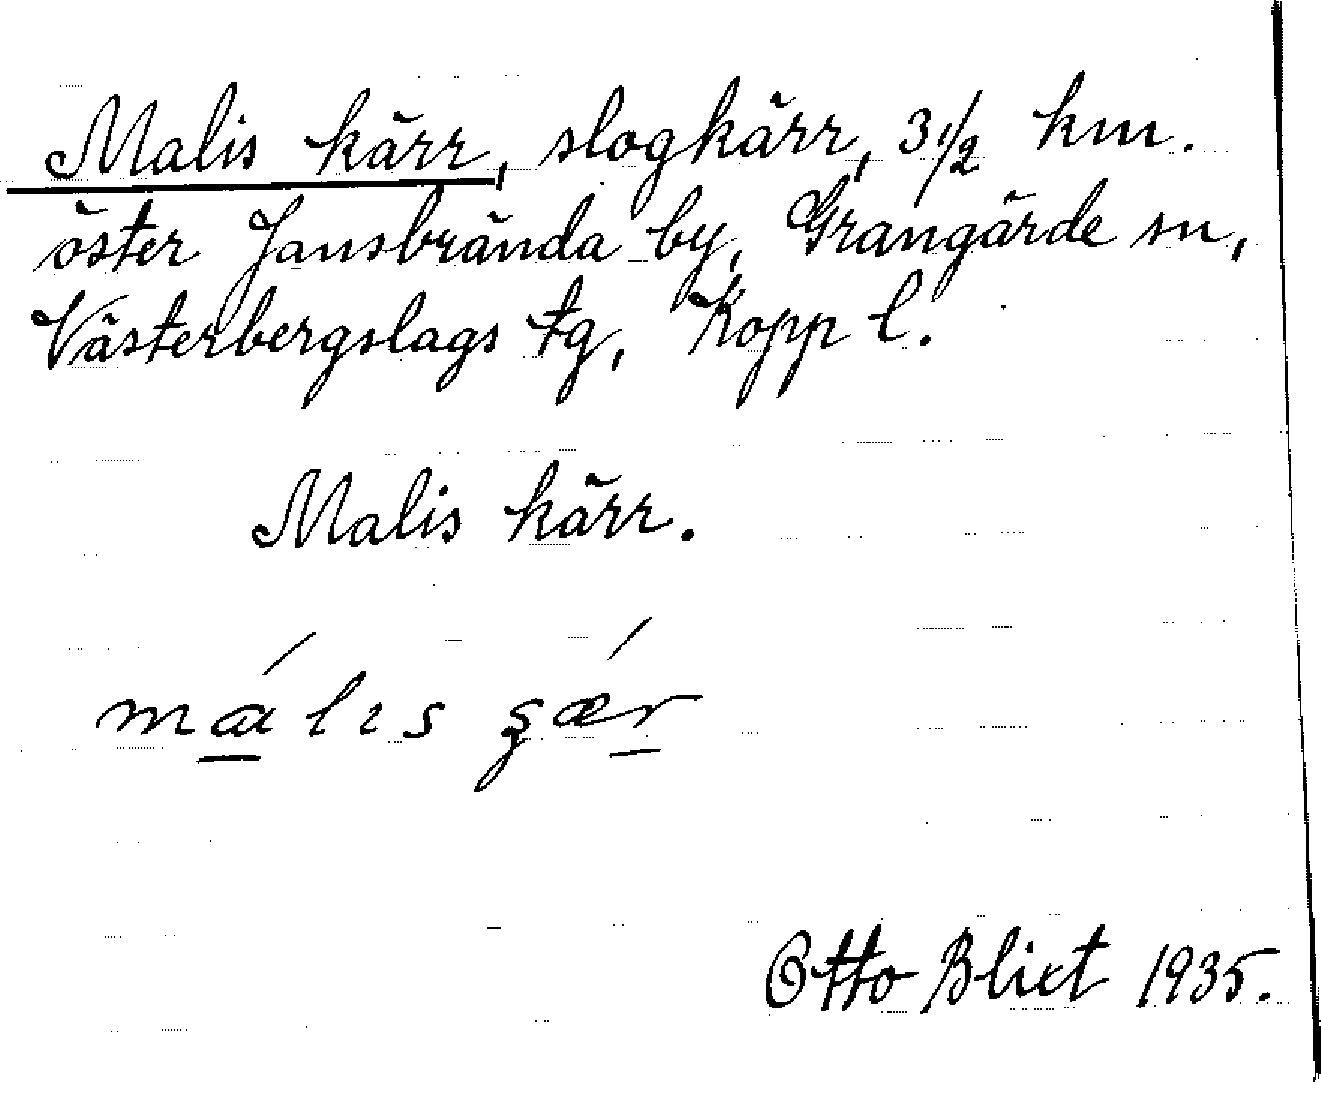 Malis kärr, slogkärr, 3 1/2 km.
öster Jansbrända by, Grangärde sn,
Västerbergslags tg, Kopp l.
Malis kärr.
Otto Blixt 1935.